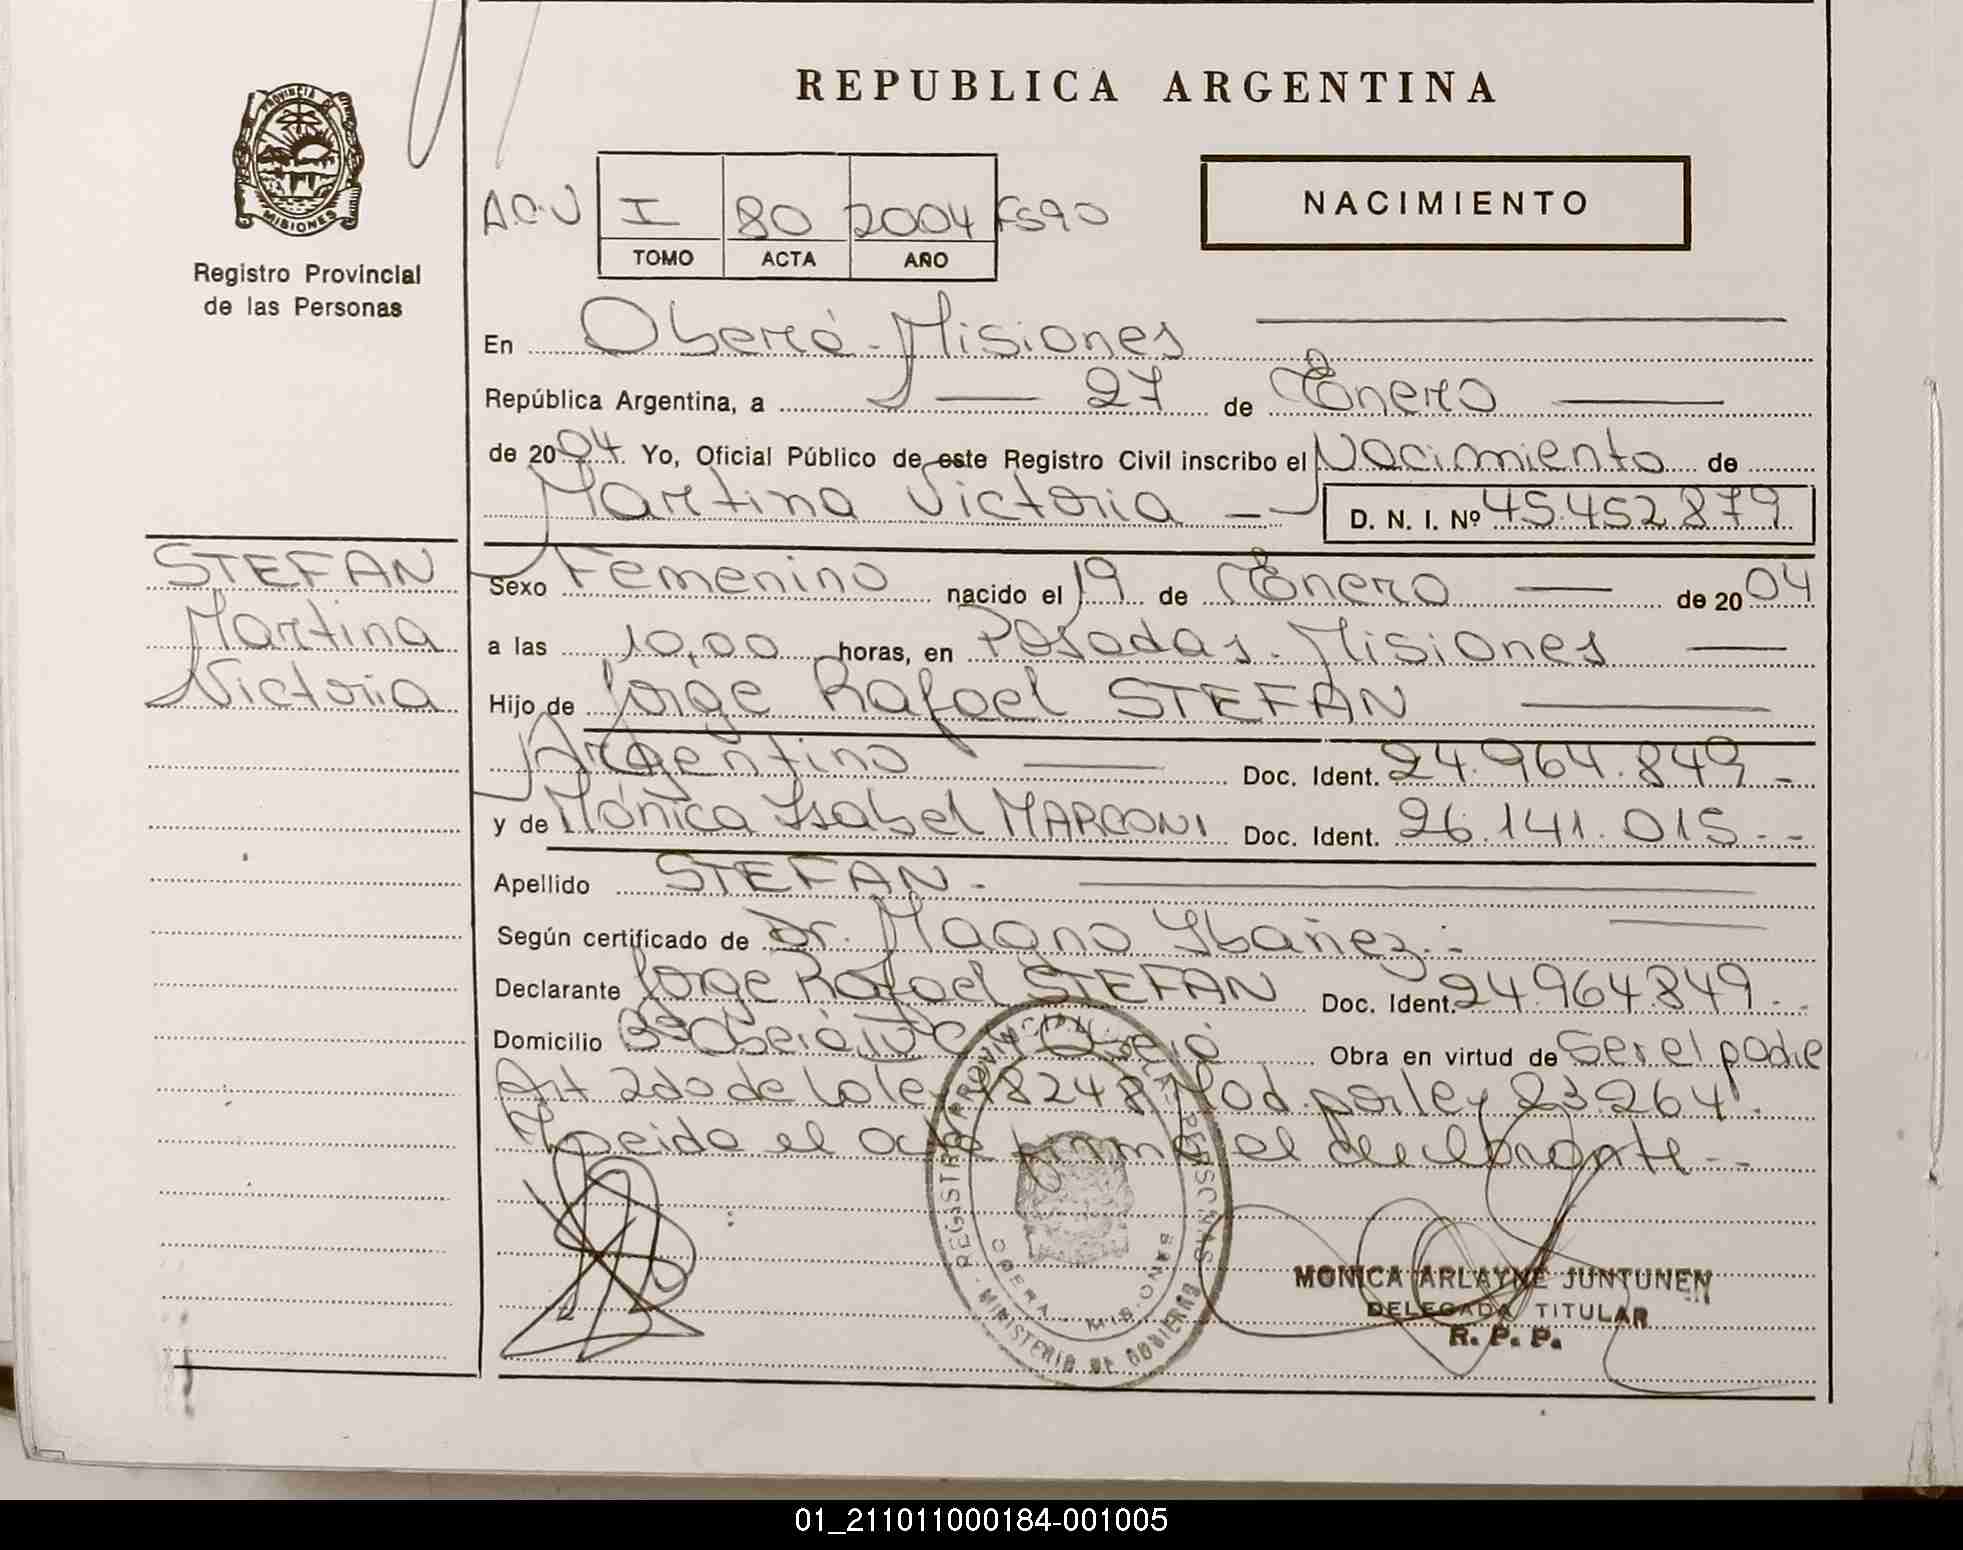 REPUBLICA ARGENTINA
PROVINCIA DE MISIONES
Registro Provincial
de las Personas
NACIMIENTO
I 80 2004 FS90
TOMO ACTA AÑO
En Oberá - Misiones
República Argentina, a 27 de Enero
de 2004. Yo, Oficial Público de este Registro Civil inscribo el Nacimiento de
Martina Victoria D. N. I. Nº 45.452.879
STEFAN
Martina
Victoria
Sexo Femenino nacido el 19 de Enero de 2004
a las 10,00 horas, en Posadas - Misiones
Hijo de Jorge Rafael STEFAN
Argentino Doc. Ident. 24.964.849 -
y de Mónica Isabel MARCONI Doc. Ident. 26.141.015 - -
Apellido STEFAN -
Según certificado de Dr. Magno Ibañez.-
Declarante Jorge Rafael STEFAN Doc. Ident. 24.964.849 -
Domicilio Oberá Obra en virtud de Ser el padre
Art 2do de la ley 18248 Mod. por ley 23.264.
Leida el acta firma el declarante - -
REGISTRO PROVINCIAL DE LAS PERSONAS
OBERA - MISIONES
MINISTERIO DE GOBIERNO
MONICA ARLAYNE JUNTUNEN
DELEGADA TITULAR
R. P. P.
01_211011000184-001005